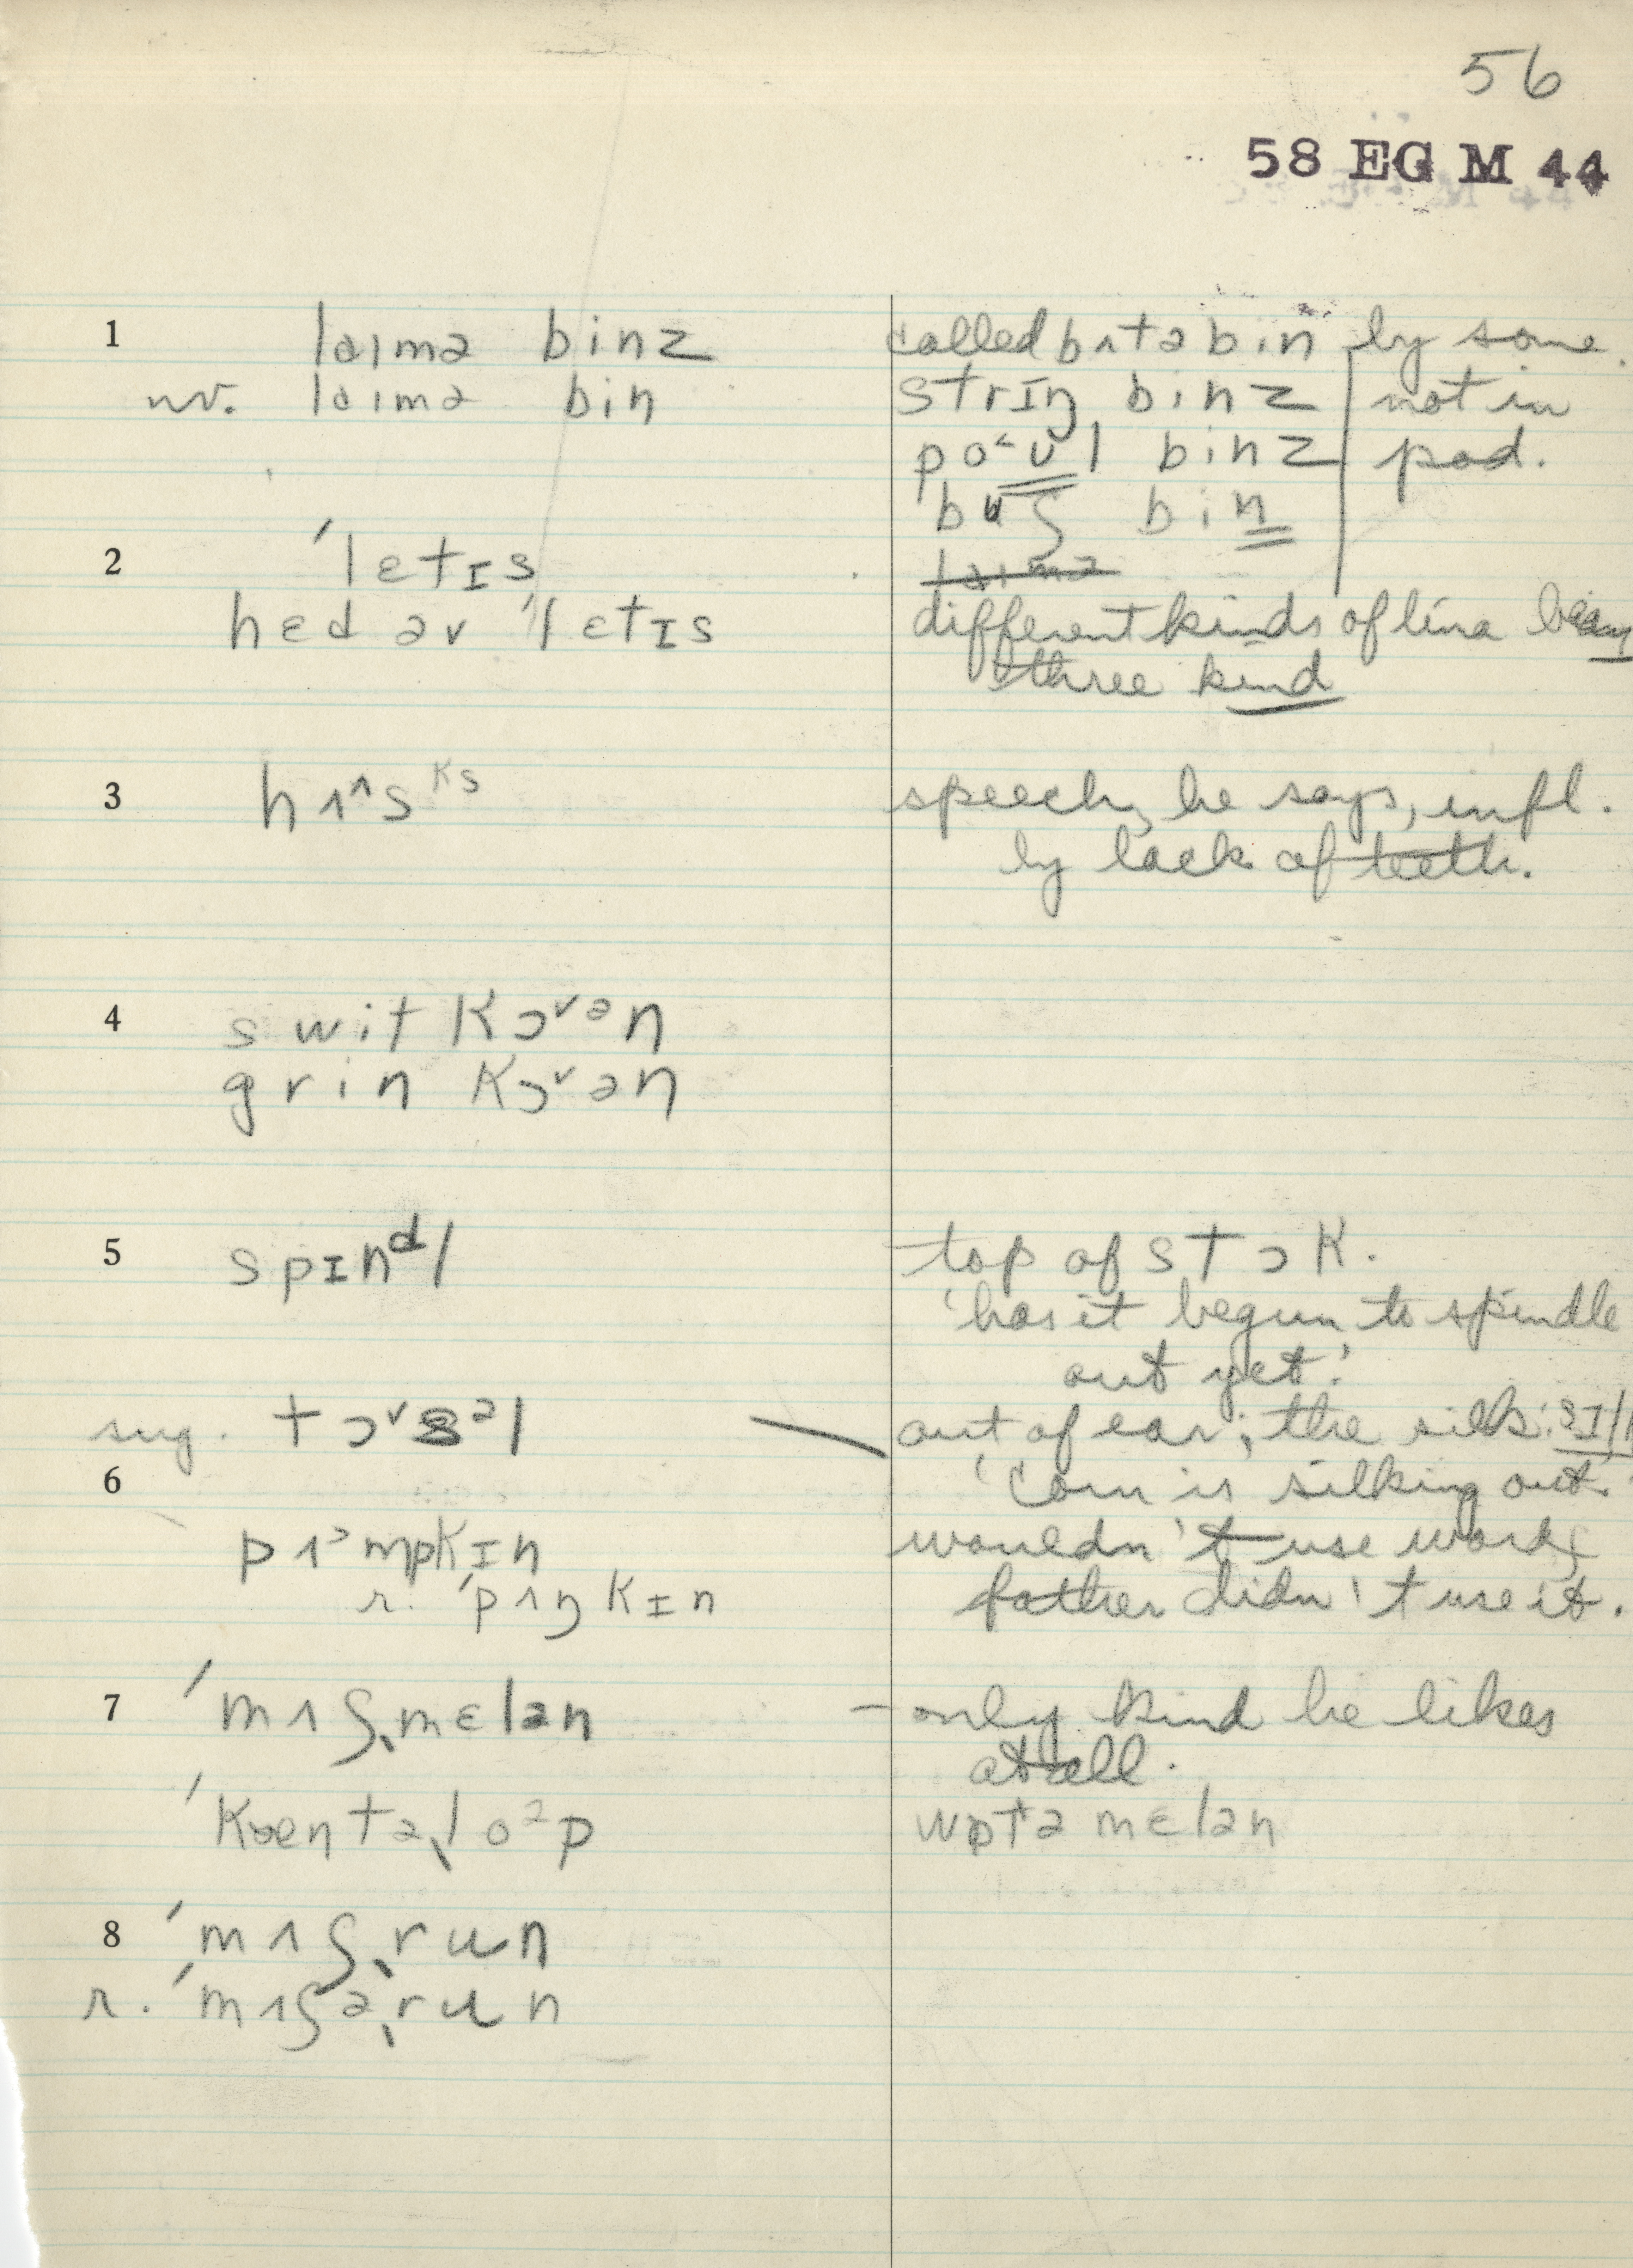 56
58 EG M 44
1 laɪmə binz
nv. laɪmə bin
called bʌtə bin by some.
strɪŋ binz not in
po˂ʊl binz pod.
bʊʃ bin
laɪmə
2 ˈletɪs
hɛd əv ˈletɪs
different kinds of lima bean
three kind
3 hʌ^s ks
speech, he says, infl.
by lack of teeth.
4 swit kɔ˅ən
grin kɔ˅ən
5 spɪndl
top of stɔk.
'has it begun to spindle
out yet.'
sug. tɔ˅səl
out of ear; the silk: sɪlk
6
'Corn is silking out.'
pʌɔmpkɪn
wouldn't use word;
r. ˈpʌŋkɪn
father didn't use it.
7 ˈmʌʃˌmɛlən
– only kind he likes
at all.
ˈkæntəˌloəp
wɒtə mɛlən
8 ˈmʌʃˌrun
r. ˈmʌʃəˌrun